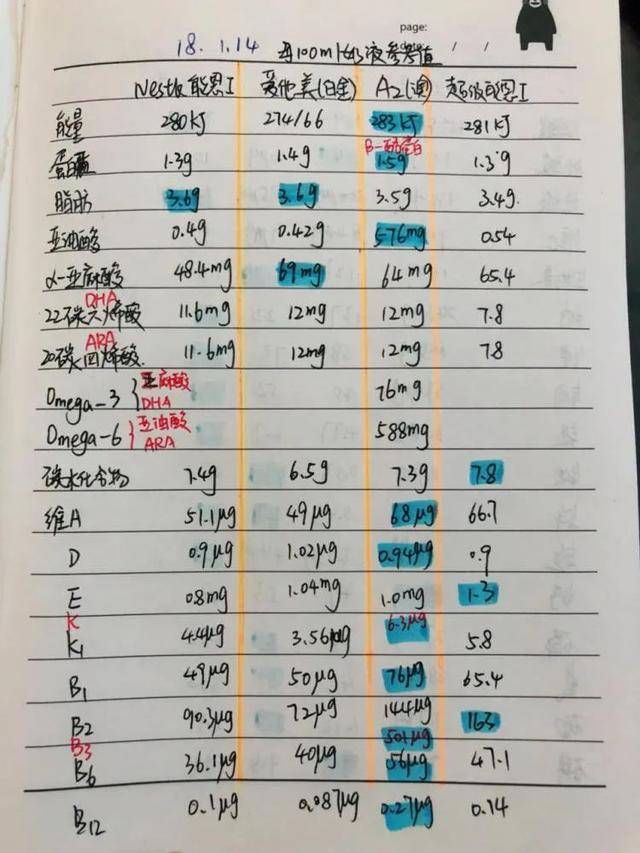 page:
18.1.14 每100ml奶液参考值 / /
Nestle能恩I 爱他美(白金) A2(澳) 超级能恩I
能量 280kJ 274/66 283kJ 281kJ
β-酪蛋白
蛋白质 1.3g 1.4g 1.5g 1.3g
脂肪 3.6g 3.6g 3.5g 3.4g
亚油酸 0.4g 0.42g 576mg 0.54
α-亚麻酸 48.4mg 69mg 64mg 65.4
DHA
22碳六烯酸 11.6mg 12mg 12mg 7.8
ARA
20碳四烯酸 11.6mg 12mg 12mg 7.8
Omega-3 { 亚麻酸 DHA 76mg
Omega-6 { 亚油酸 ARA 588mg
碳水化合物 7.4g 6.5g 7.3g 7.8
维A 51.1μg 49μg 68μg 66.7
D 0.9μg 1.02μg 0.94μg 0.9
E 0.8mg 1.04mg 1.0mg 1.3
K 6.3μg
K1 4.4μg 3.56μg 5.8
B1 49μg 50μg 76μg 65.4
B2 90.3μg 72μg 144μg 163
B3 501μg
B6 36.1μg 40μg 56μg 47.1
B12 0.1μg 0.087μg 0.27μg 0.14